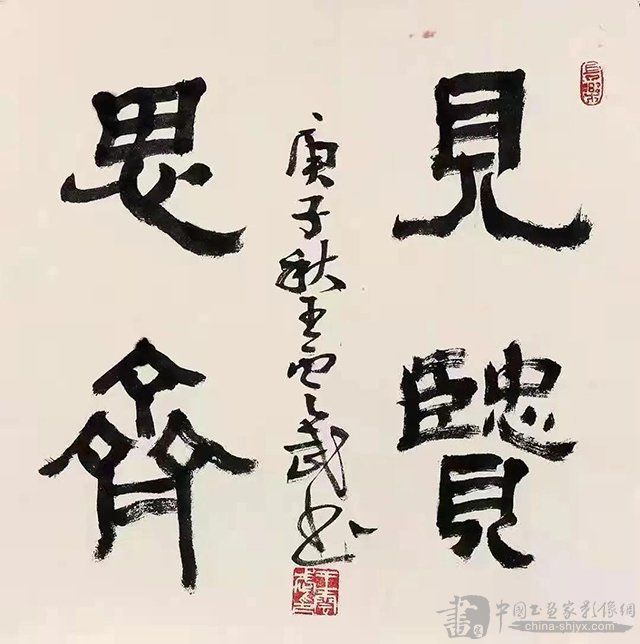 見賢
思齊
庚子秋王雲武书
長樂
書
中國书画家影像網
china-shjyx.com